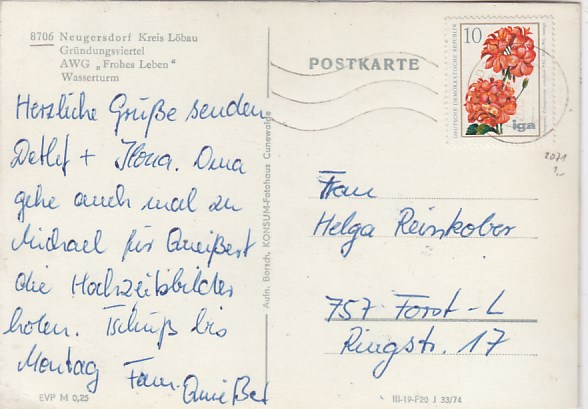 8706 Neugersdorf Kreis Löbau
Gründungsviertel
AWG „Frohes Leben"
Wasserturm
POSTKARTE
10
DEUTSCHE DEMOKRATISCHE REPUBLIK
iga
2071
Herzliche Grüße senden
Detlef + Ilona. Oma
gehe auch mal zu
Michael für Queißert
die Hochzeitsbilder
holen. Tschüß bis
Montag Fam. Queißert
Aufn. Borsch, KONSUM-Fotohaus Cunewalde
Frau
Helga Reinskober
757 Forst-L
Ringstr. 17
EVP M 0,25
III-19-F20 J 33/74